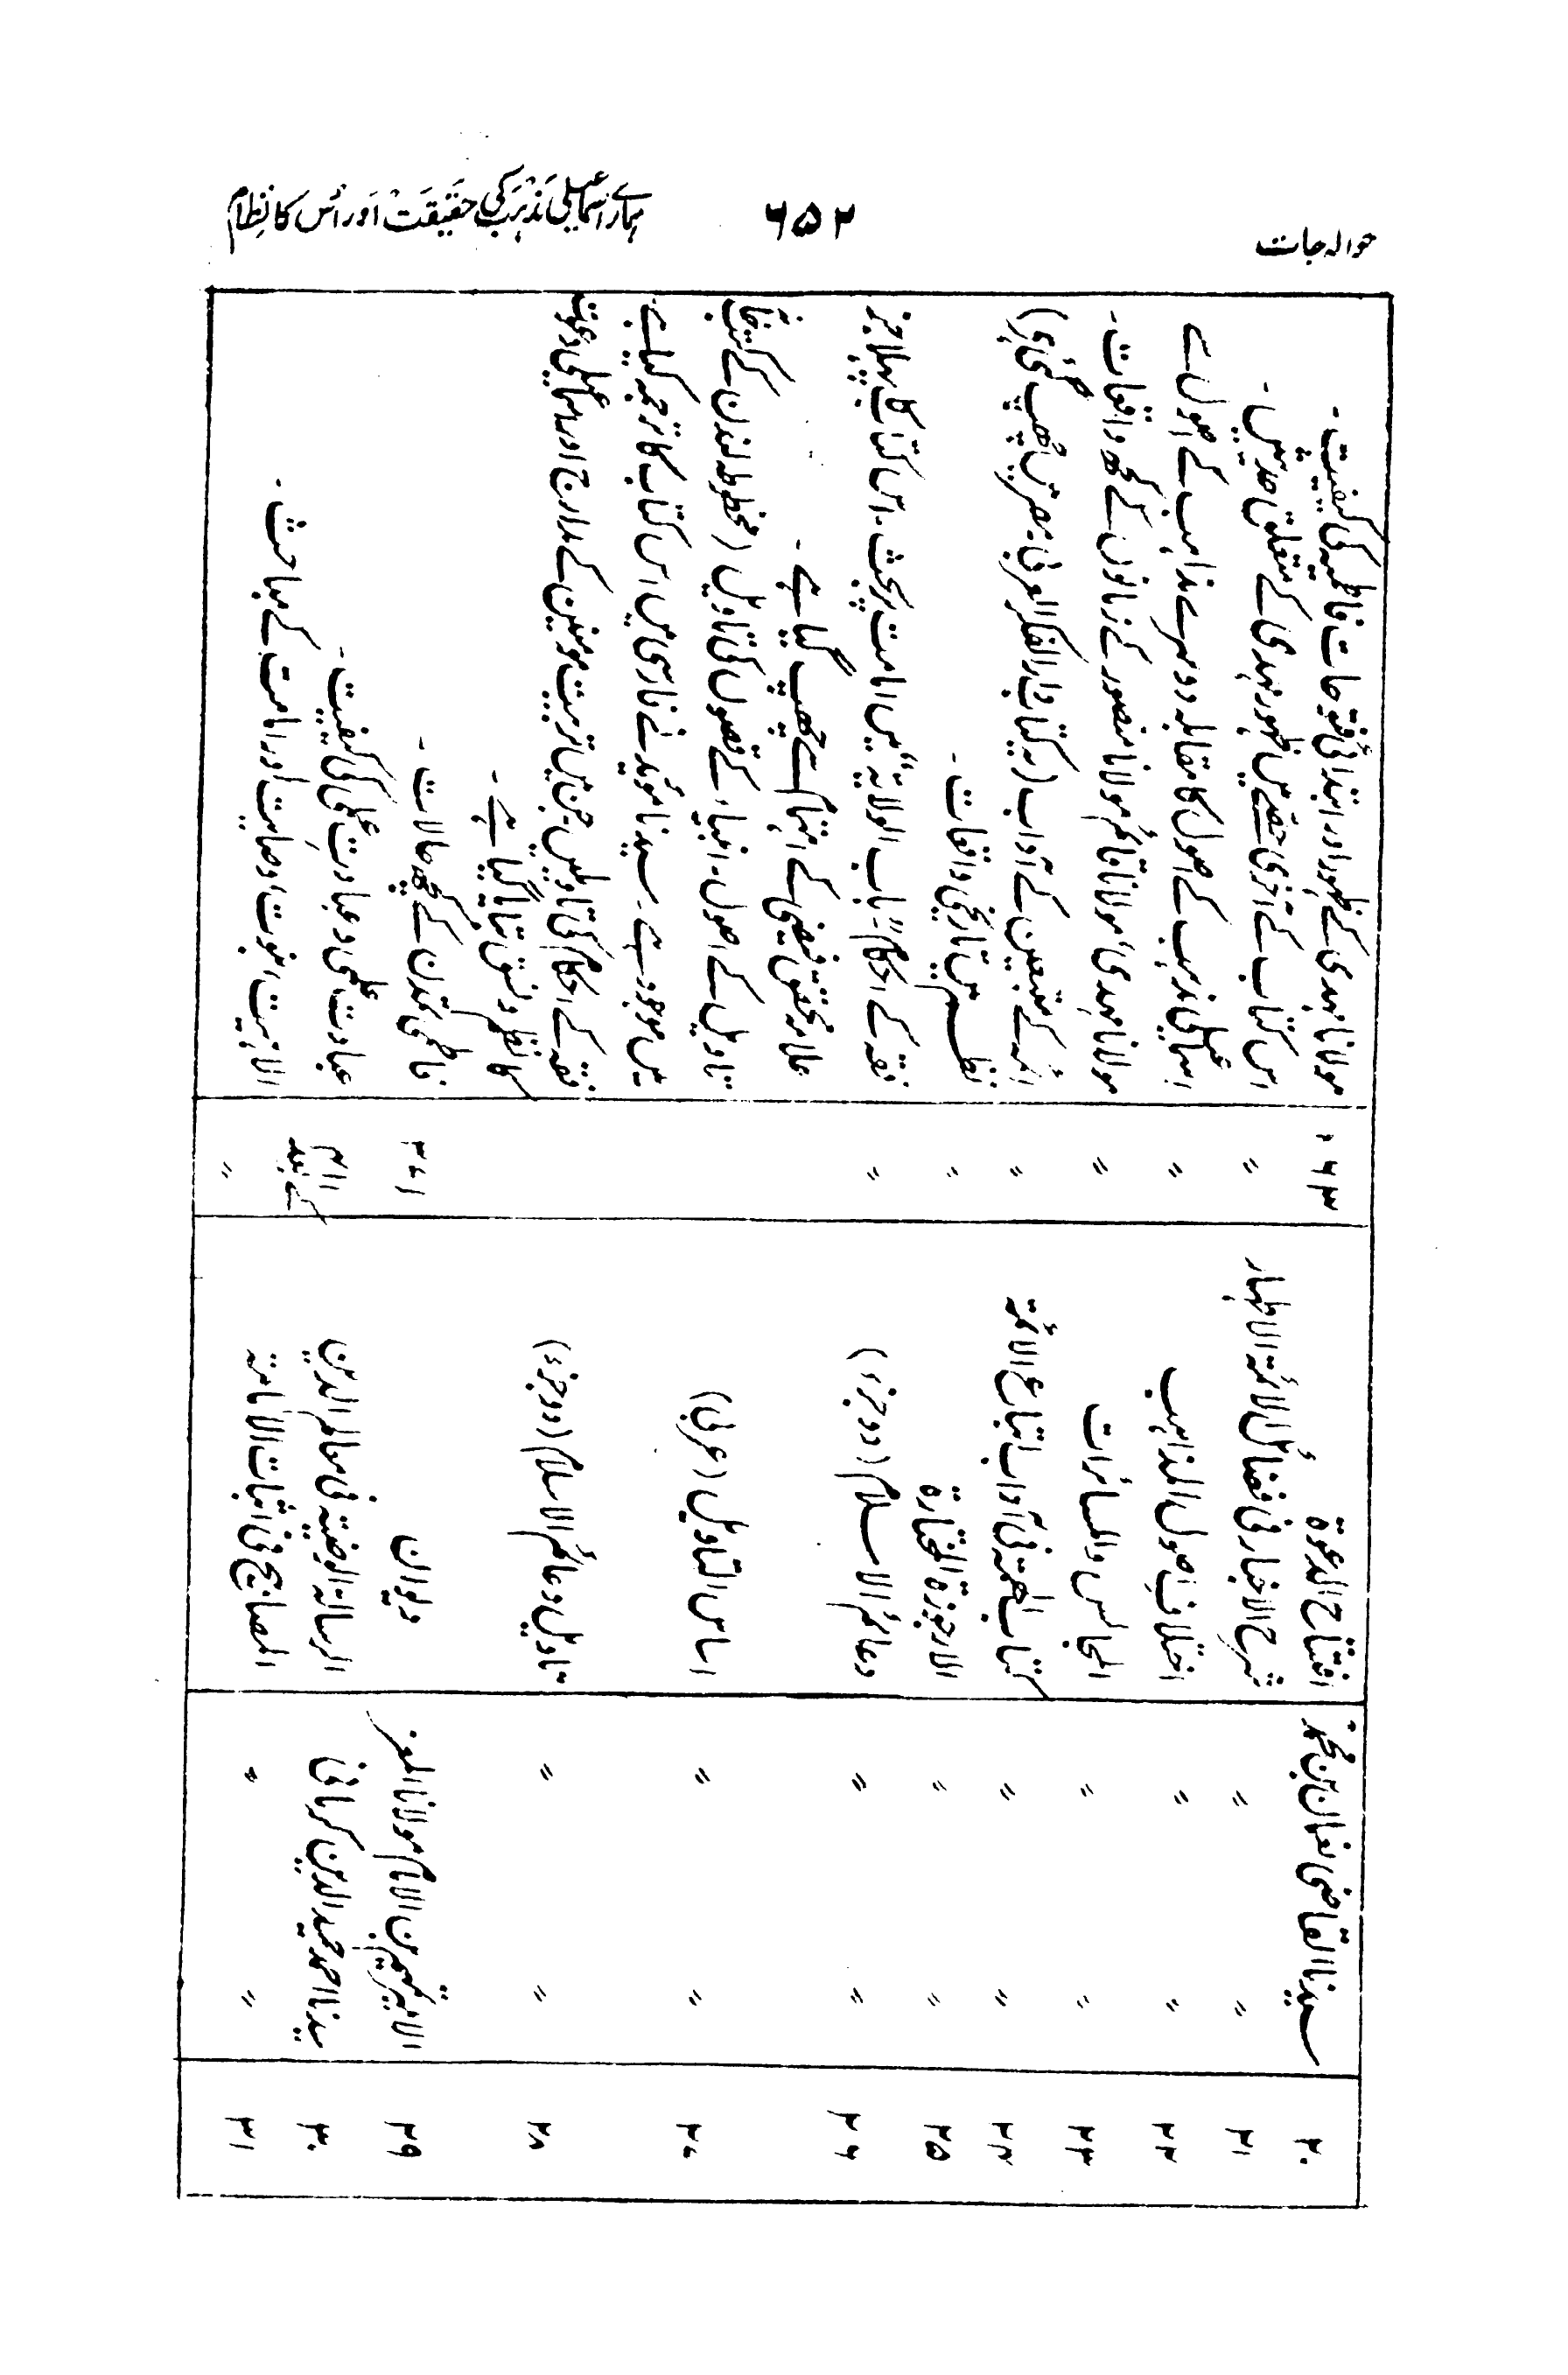 حوالہ جات
۶۵۲
ہمارے اسماعیلی مذہب کی حقیقت اور اس کا نظام
۲۰ سیدنا القاضی نعمان بن محمد افتتاح الدعوۃ ۳۶۳ مولانا مہدی کے ظہور اور ابتدائی فتوحات فاطمیہ کی کیفیت ۔
۲۱〃 〃 شرح الاخبار فی فضائل الائمۃ الاطہار 〃 اس کتاب کے آخری حصے میں ظہور مہدی کے متعلق حدیثیں ۔
۲۲ 〃 〃 اختلاف اصول المذاہب 〃 اسماعیلی مذہب کے اصول کا مقابلہ دوسرے مذاہب کے اصول سے
۲۳ 〃 〃 المجالس والمسائرات 〃 مولانا مہدی، مولانا قائم، مولانا منصور کے زمانوں کے کچھ واقعات ۔
۲۴ 〃 〃 کتاب الہمۃ فی آداب اتباع الائمۃ 〃 ائمہ کے متبعین کے آداب (یہ کتاب دار الفکر العربی مصر میں چھپ گئی ہے)
۲۵ 〃 〃 الارجوزۃ المختارۃ 〃 نظم میں تاریخی واقعات ۔
۲۶ 〃 〃 دعائم الاسلام (دو جزء) 〃 فقہ کے احکام "باب الولایۃ" میں امامت پر بحث ۔ اس کتاب کا پہلا جزء
علامہ محقق فیضی کے اہتمام سے چھپ گیا ہے ۔
۲۷ 〃 〃 اساس التاویل (عربی) تاویل کے اصول ۔ انبیاء کے قصوں کی تاویل (مخطوطہ لندن کے کتب خانہ
میں موجود ہے ۔ سیدنا مؤید نے فارسی میں اس کتاب کا ترجمہ کیا ہے ۔
۲۸ 〃 〃 تاویل دعائم الاسلام (دو جزء) فقہ کے احکام کی تاویلیں جن میں تربیت مومنین کے مدارج اور اسماعیلی دعوت
کا نظم و نسق بتایا گیا ہے ۔
۲۹ الامیر تمیم بن الامام مولانا المعز دیوان ۳۷۱ فاطمی تمدن کے کچھ حالات ۔
۳۰ سیدنا احمد حمید الدین کرمانی الرسالۃ الوضیۃ فی معالم الدین کے بعد عبادت علمی و عبادت عملی کی کیفیت ۔
۳۱ 〃 〃 المصابیح فی اثبات الامامۃ 〃 الوہیت، نبوت، وصایت اور امامت کے مباحث ۔